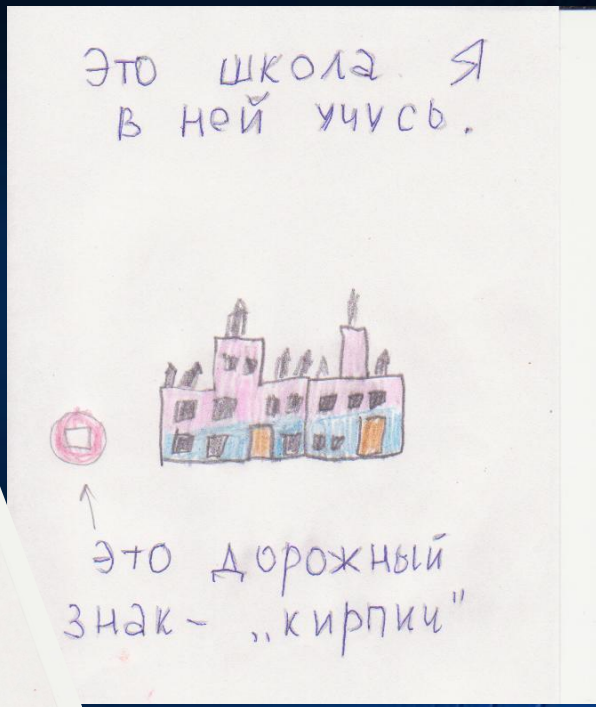 Это школа. Я
в ней учусь.
это дорожный
знак - „кирпич"